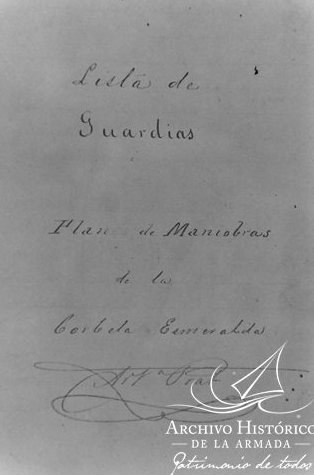 Lista de
Guardias
Plan de Maniobras
de la
Corbeta Esmeralda
Art.ª Prat
ARCHIVO HISTÓRICO
DE LA ARMADA
Patrimonio de todos